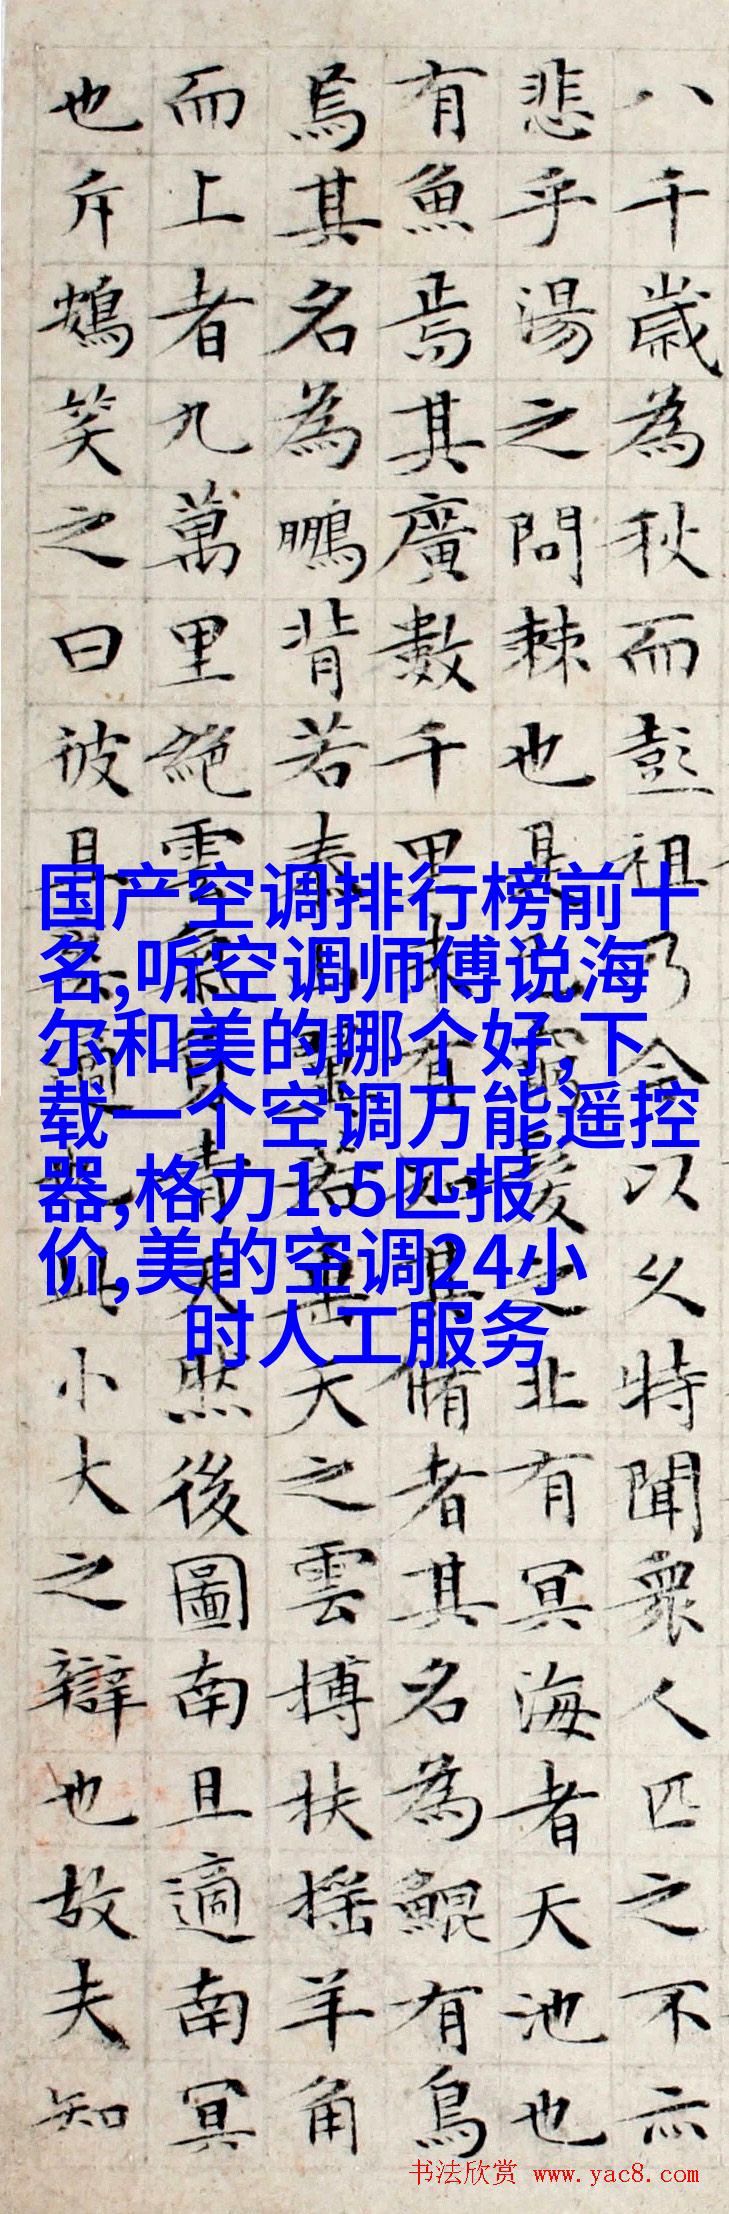 八千歲為秋而彭祖乃今以久特聞衆人匹之不亦
悲乎湯之問棘也是已窮髮之北有冥海者天池也
有魚焉其廣數千里未有知其脩者其名為鯤有鳥
焉其名為鵬背若泰山翼若垂天之雲搏扶摇羊角
而上者九萬里絶雲氣負青天然後圖南且適南冥
也斥鴳笑之曰彼且奚適也此小大之辯也故夫知
国产空调排行榜前十
名,听空调师傅说海
尔和美的哪个好,下
载一个空调万能遥控
器,格力1.5匹报
价,美的空调24小
时人工服务
书法欣赏 www.yac8.com